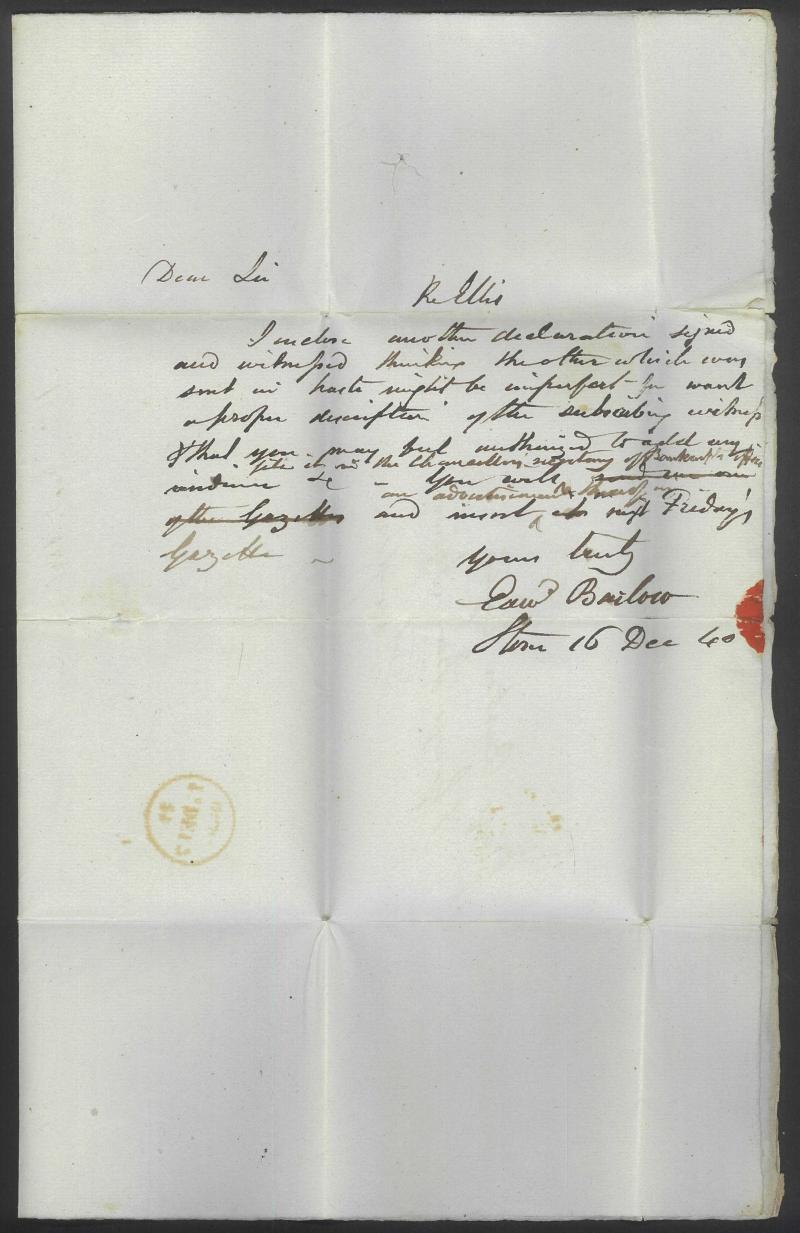 Dear Sir
Re Ellis
I inclose another declaration signed
and witnessed thinking the other which was
sent in haste might be imperfect for want
a proper description of the subscribing witness
& that you may but authorized to add any
file it in the Chancellors secretary of Bankrupts office
&c – You will
an advertisement thereof in
of the Gazettes and insert its next Friday's
Gazette –
Yours truly
Edwd Barlow
Stone 16 Dec 40